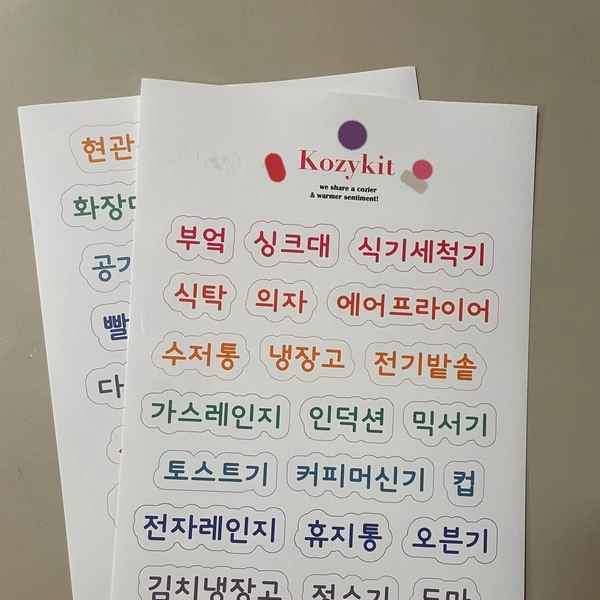 Kozykit
we share a cozier
& warmer sentiment!
부엌 싱크대 식기세척기
식탁 의자 에어프라이어
수저통 냉장고 전기밭솥
가스레인지 인덕션 믹서기
토스트기 커피머신기 컵
전자레인지 휴지통 오븐기
김치냉장고 정수기 도마
현관
화장
공기
빨
다